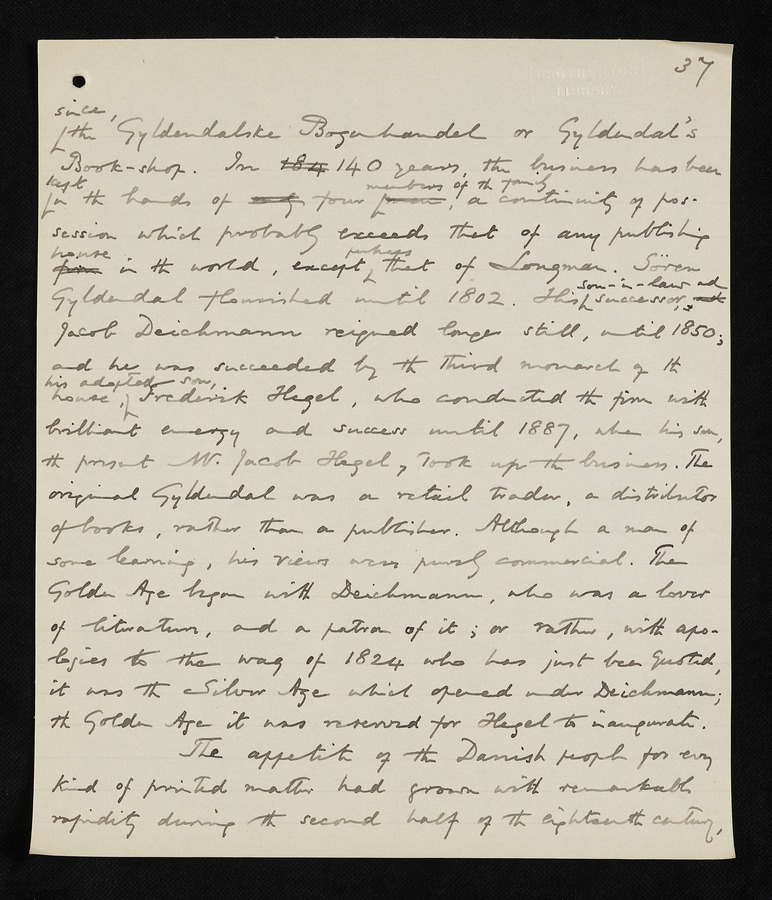 37
BROTHERTON
LIBRARY
since,
the Gyldendalske Boganhandel or Gyldendal's
Book-shop. In 184 140 years, the business has been
kept members of the family
in the hands of four, a continuity of pos-
session which probably exceeds that of any publishing
house perhaps
firm in the world, except, that of Longman. Sören
son-in-law and
Gyldendal flourished until 1802. His successor, and
Jacob Deichmann reigned longer still, until 1850;
and he was succeeded by the third monarch of the
his adopted son,
house, Frederik Hegel, who conducted the firm with
brilliant energy and success until 1887, when his son,
the present Mr. Jacob Hegel, took up the business. The
original Gyldendal was a retail trader, a distributor
of books, rather than a publisher. Although a man of
some learning, his views were purely commercial. The
Golden Age began with Deichmann, who was a lover
of literature, and a patron of it; or rather, with apo-
logies to the wag of 1824 who has just been quoted,
it was the Silver Age which opened under Deichmann;
the Golden Age it was reserved for Hegel to inaugurate.
The appetite of the Danish people for every
kind of printed matter had grown with remarkable
rapidity during the second half of the eighteenth century,